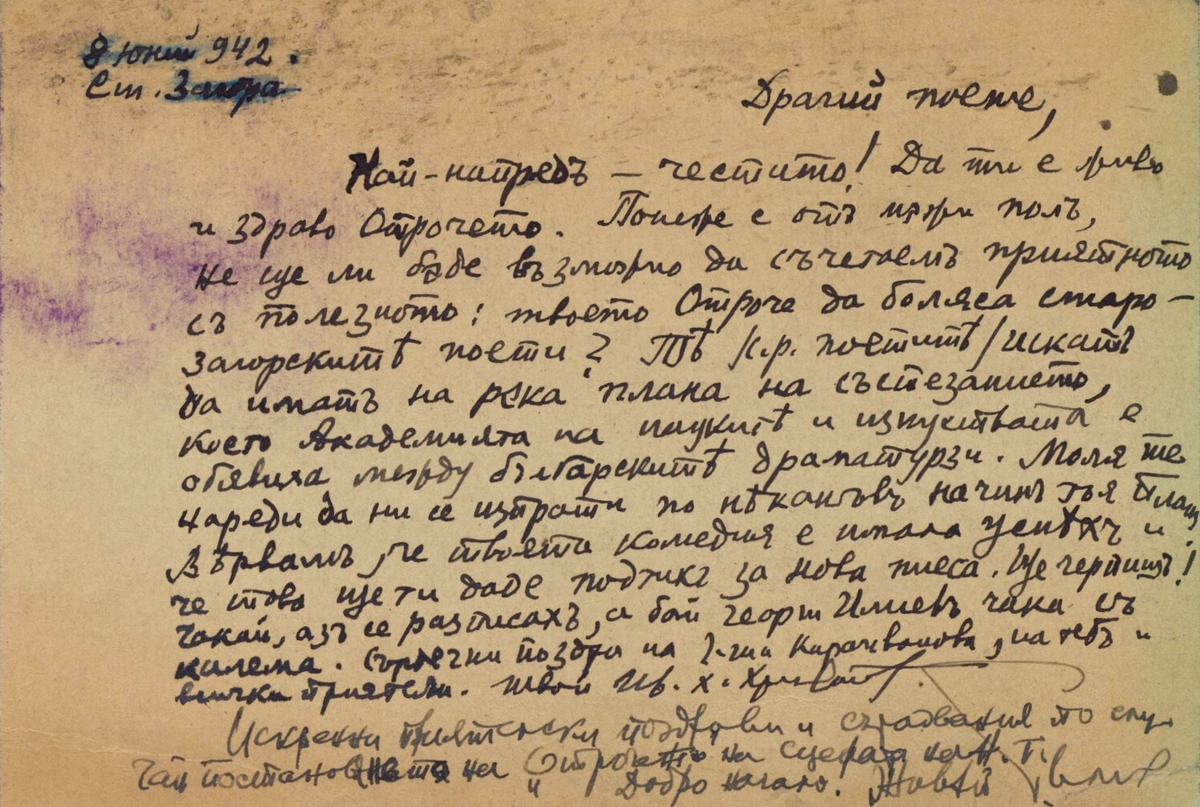 8 юний 942.
Ст. Загора
Драгий поете,
Най-напредъ – честито! Да ти е живо
и здраво Отрочето. Понеже е отъ мѫжки полъ,
не ще ли бѫде възможно да съчетаемъ приятното
съ полезното: твоето Отроче да боляса старо-
загорскитѣ поети? Тѣ /с.р. поетитѣ/ искатъ
да иматъ на рѫка плана на състезанието,
което Академията на наукитѣ и изкуствата е
обявила между българскитѣ драматурзи. Моля те
нареди да ни се изпрати по нѣкакъвъ начинъ тоя планъ
Вѣрвамъ, че твоята комедия е имала успѣхъ и
че това ще ти даде подтикъ за нова пиеса. Ще черпишъ!
Чакай, азъ се разписахъ, а бай Георги Илиевъ чака съ
калема. Сърдечни поздрави на Г-жа Караиванова, на тебъ и
всички приятели. Твой Ив. х. Христовъ
Искренни приятелски поздрави и съ радвания по слу-
чай постановката на Отрочето на сцената на Н. Т.
и Добро начало.